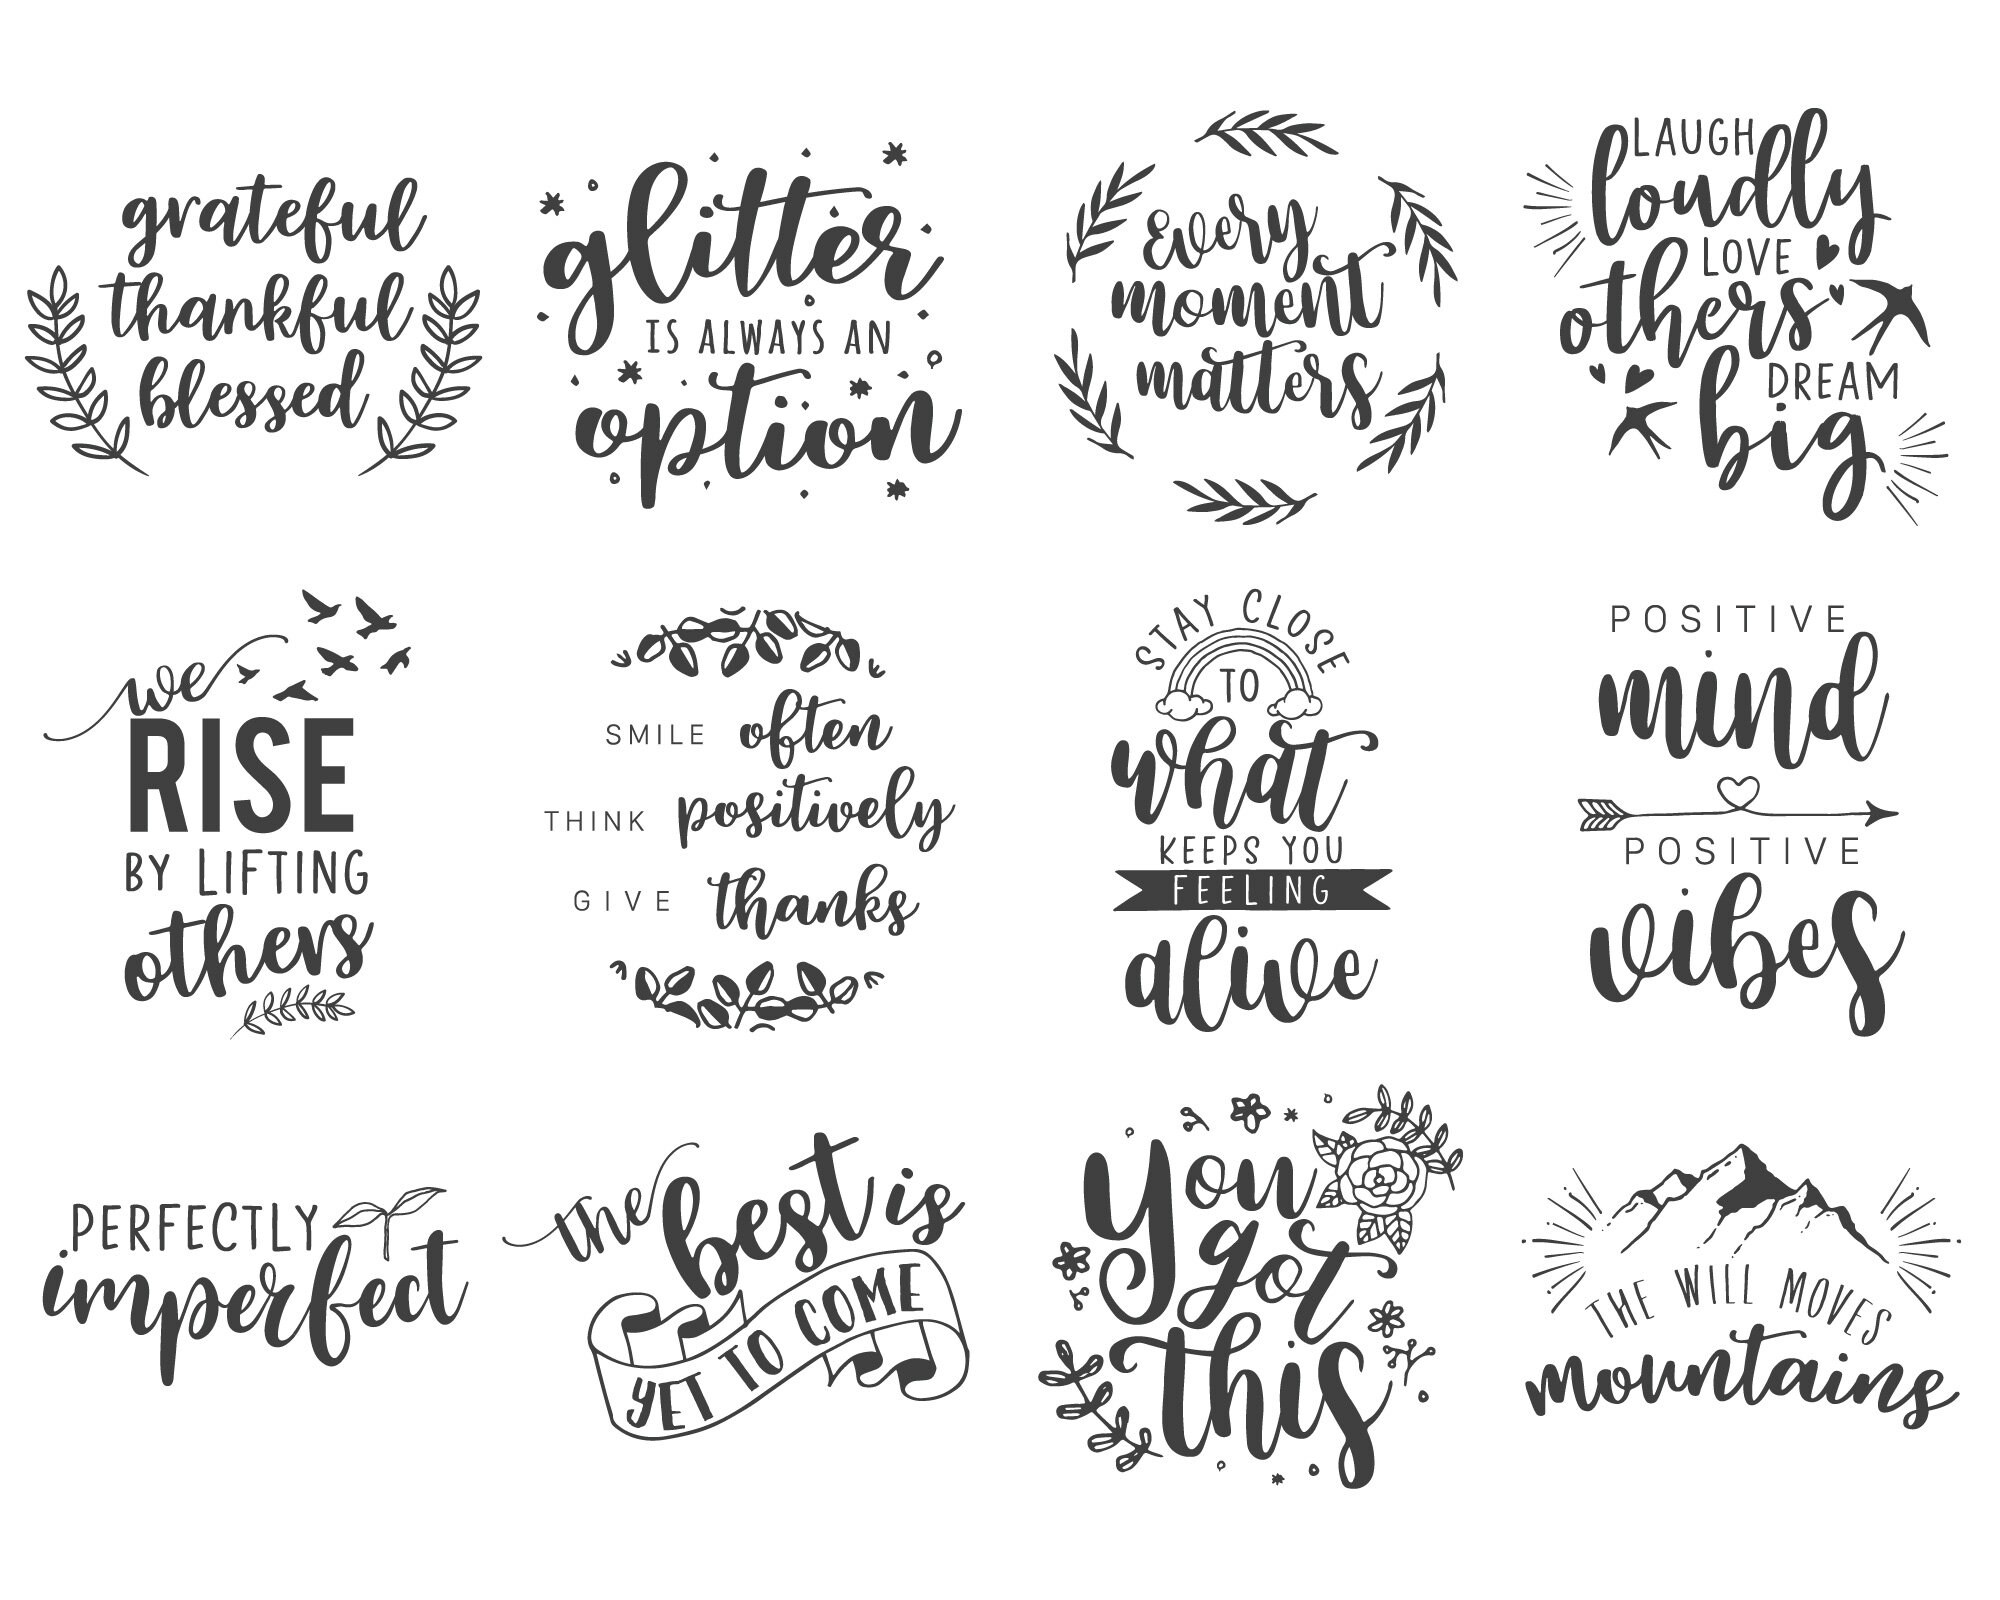 grateful
thankful
blessed
glitter
IS ALWAYS AN
option
Every
moment
matters
LAUGH
loudly
LOVE
others
DREAM
big
we
RISE
BY LIFTING
others
SMILE often
THINK positively
GIVE thanks
STAY CLOSE
TO
what
KEEPS YOU
FEELING
alive
POSITIVE
mind
POSITIVE
vibes
PERFECTLY
imperfect
the best is
YET TO COME
You
got
this
THE WILL MOVES
mountains